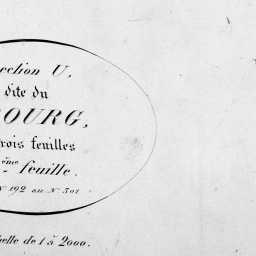 ection U,
dite du
OURG,
rois feuilles
ème feuille.
N° 192 au N° 301
elle de 1 à 2000.